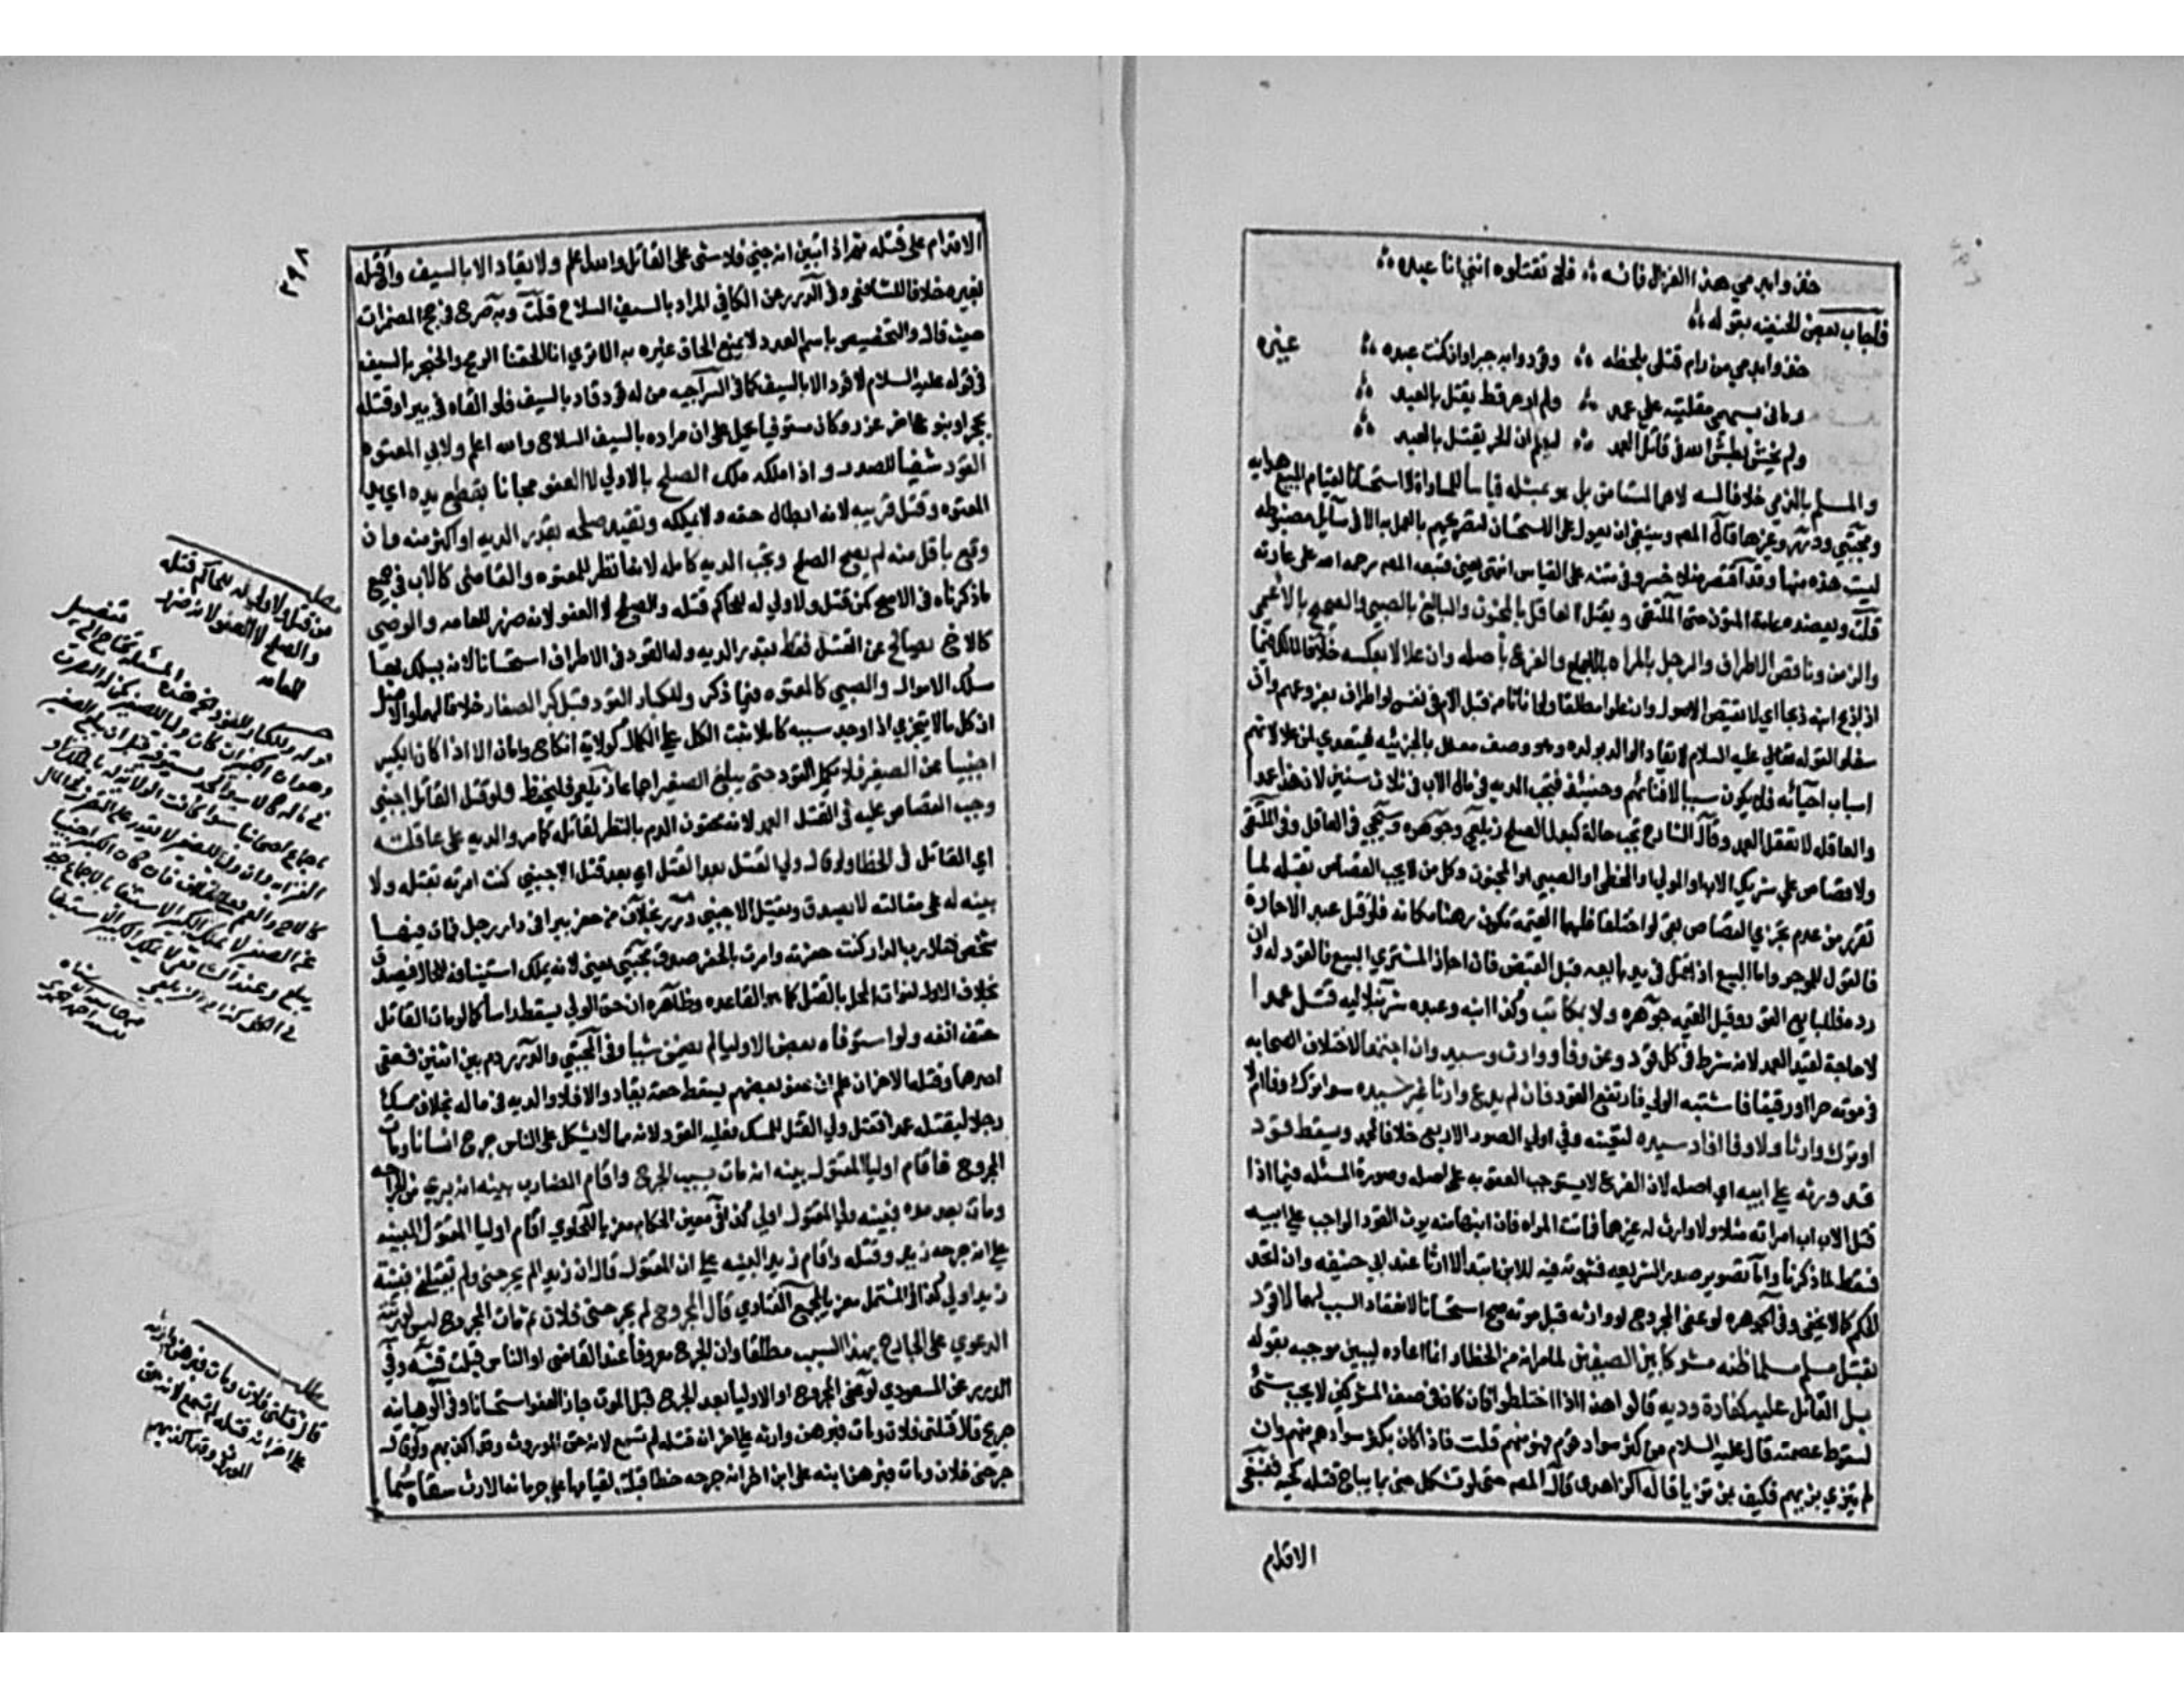 خذوا بدمي هذا الغزال فانه ؞ فلا تقتلوه انني انا عبده ؞
فاجاب بعض الحنفيه بقوله ؞
خذوا بدمي من رام قتلي بلحظه ؞ وقودوا به جبرا وان كنت عبده ؞ غيره
رماني بسهمي مقلتيه على عمد ؞ ولم ار حر قط يقتل بالعبد ؞
ولم يخش بطش الله في قاتل العمد ؞ ليعلم ان الحر يقتل بالعبد ؞
والمسلم بالذمي خلافا له لا هما بمستامن بل هو بمثله قياسا للمساواة لا استحسانا لقيام المبيح هدايه
ومجتبي ودرر وغيرها قال المص وينبغي ان يعول على الاستحسان لتصريحهم بالعمل به الا في مسايل مضبوطه
ليست هذه منها وقد اقتصر منلا خسرو في متنه على القياس انتهى يعني فتبعه المص رحمه الله على عادته
قلت ويعضده عامة المتون حتى الملتقى ويقتل العاقل بالمجنون والبالغ بالصبي والصحيح بالاعمى
والزمن وناقص الاطراف والرجل بالمراه بالاجماع والفرع باصله وان علا لا بعكسه خلافا لمالك فيما
اذا ذبح ابنه ذبحا اي لا يقتص الاصول وان علوا مطلقا ولو اناثا من قبل الام في نفس او اطراف بفروعهم وان
سفلوا لقوله عليه السلام لا يقاد الوالد بولده وهو وصف معلل بالجزئيه فيتعدي لمن علا لانهم
اسباب احيائه فلا يكون سببا لافنائهم وحينئذ فتجب الديه في مال الاب في ثلاث سنين لان هذا عمد
والعاقله لا تعقل العمد وقال الشارح تجب حالة كبدل الصلح زيلعي وجوهره وسيجي في المعاقل وفي الملتقى
ولا قصاص على شريك الاب او المولى او المخطي او الصبي او المجنون وكل من لا يجب القصاص بقتله لما
تقرر من عدم تجزي القصاص
فالقول للموجر واما المبيع اذا قتل في يد بايعه قبل القبض فان اجاز المشتري البيع فالقود له وان
رد فللبايع القود وقيل القيمه جوهره ولا بمكاتب وكذا ابنه وعبده شرنبلاليه قتل عمدا
لا حاجة لقيد العمد لانه شرط في كل قود وعن وفا ووارث وسيد وان اجتمعا لاختلاف الصحابه
في موته حرا او رقيقا فاشتبه الولي فارتفع القود فان لم يدع وارثا غير سيده سوا ترك وفا او لا
او ترك وارثا ولا وفا اقاد سيده لتعينه وفي اولى الصور الاربع خلافا لمحمد ويسقط قود
قد ورثه على ابيه اي اصله لان الفرع لا يستوجب العقوبه على اصله وصورة المسئله فيما اذا
قتل الاب اب امراته مثلا ولا وارث له غيرها فماتت المراه فان ابنها منه يرث القود الواجب على ابيه
فسقط لما ذكرنا واما تصوير صدر الشريعه فثبوته فيه للابن ابتداء لا ارثا عند ابي حنيفه وان اتحد
الحكم كما لا يخفى وفي الجوهره لو عفى المجروح او وارثه قبل موته صح استحسانا لانعقاد السبب لهما لا قود
بقتل مسلم مسلما ظنه مشركا بين الصفين لما مر انه من الخطا وانما اعاده ليبين موجبه بقوله
بل القاتل عليه كفارة وديه قالوا هذا اذا اختلطوا فان كان في صف المشركين لا يجب شئ
لسقوط عصمته قال عليه السلام من كثر سواد قوم فهو منهم قلت فاذا كان مكثر سوادهم منهم وان
لم يتزي بزيهم فكيف بمن تزيا قاله الزاهدي قال المص حتى لو تشكل جني بما يباح قتله كحية فينبغي
الاقدام
٣٩٨
الاقدام على قتله ثم اذا تبين انه جني فلا شى على القاتل والله اعلم ولا يقاد الا بالسيف وان قتله
بغيره خلافا للشافعي وفي الدرر عن الكافي المراد بالسيف السلاح قلت وبه صرح في حج المضمرات
حيث قال والتخصيص باسم العدد لا يمنع الحاق غيره به الا ترى انا الحقنا الرمح والخنجر بالسيف
في قوله عليه السلام لا قود الا بالسيف كما في السراجيه من له قود قاد بالسيف فلو القاه في بير او قتله
بحجر او بنوع اخر عزر وكان مستوفيا يحمل على ان مراده بالسيف السلاح والله اعلم ولابي المعتوه
القود تشفيا للصدر واذا ملكه ملك الصلح بالاولى لا العفو مجانا بقطع يده اي يد
المعتوه وقتل قريبه لانه ابطال حقه ولا يملكه وتقيد صلحه بقدر الديه او اكثر منه وان
وقع باقل منه لم يصح الصلح وتجب الديه كامله لانها انظر للمعتوه والقاضي كالاب في جميع
ما ذكرناه في الاصح كمن قتل ولا ولي له للحاكم قتله والصلح لا العفو لانه ضرر للعامه والوصي
كالاخ يصالح عن القتل فقط بقدر الديه وله القود في الاطراف استحسانا لانه يسلك بها
مسلك الاموال والصبي كالمعتوه فيما ذكر وللكبار القود قبل كبر الصغار خلافا لهما والاصل
ان كل ما لا يتجزي اذا وجد سببه كاملا ثبت لكل على الكمال كولاية انكاح وامان الا اذا كان الكبير
اجنبيا عن الصغير فلا يملك القود حتى يبلغ الصغير اجماعا زيلعي فليحفظ ولو قتل القاتل اجنبي
وجب القصاص عليه في القتل العمد لانه محقون الدم بالنظر لقاتله كما مر والديه على عاقلته
اي القاتل في الخطا ولو قال ولي القتيل بعد القتل اي بعد قتل الاجنبي كنت امرته بقتله ولا
بينه له على مقالته لا يصدق ويقتل الاجنبي درر بخلاف من حفر بيرا في دار رجل فمات فيها
شخص فقال رب الدار كنت امرته بالحفر صدق مجتبي يعني لانه يملك استينافه للحال فيصدق
بخلاف الاول لفوات المحل بالقتل كما هو القاعده وظاهره ان حق الولي يسقط راسا كما لو مات القاتل
حتف انفه ولو استوفاه بعض الاوليا لم يضمن شيئا وفي المجتبي والدرر دم بين اثنين فعفى
احدهما وقتله الاخر ان علم ان عفو بعضهم يسقط حقه يقاد والا فلا والديه في ماله بخلاف ممسك
رجلا ليقتله عمدا فقتل ولي القتيل الممسك فعليه القود لانه مما لا يشكل على الناس جرح انسانا ومات
المجروح فاقام اوليا المقتول بينه انه مات بسبب الجرح واقام الضارب بينه انه بري من الجراحه
ومات بعد مده فبينه ولي المقتول اولى كذا في معين الحكام معزيا للحاوي اقام اوليا المقتول البينه
على انه جرحه زيد وقتله واقام زيد البينه على ان المقتول قال ان زيدا لم يجرحني ولم يقتلني فبينة
زيد اولى كذا في المشتمل معزيا لمجمع الفتاوي قال المجروح لم يجرحني فلان ثم مات المجروح ليس لورثته
الدعوى على الجارح بهذا السبب مطلقا وان الجرح معروفا عند القاضي او الناس قبلت قنيه وفي
الدرر عن المسعودي لو عفى المجروح او الاوليا بعد الجرح قبل الموت جاز العفو استحسانا وفي الوهبانيه
جرح قال قتلني فلان ومات فبرهن وارثه على اخر انه قتله لم تسمع لانه حق الموروث وقد اكذبهم ولو قال
جرحني فلان ومات فبرهن ابنه على ابن اخر انه جرحه خطا قبلت لقيامها على حرمانه الارث
مطلب
من قتل ولا ولي له للحاكم قتله
والصلح لا العفو لانه ضرر
للعامه
مطلب
قال قتلني فلان ومات فبرهن وارثه
على اخر انه قتله لم تسمع لانه حق
الموروث وقد اكذبهم